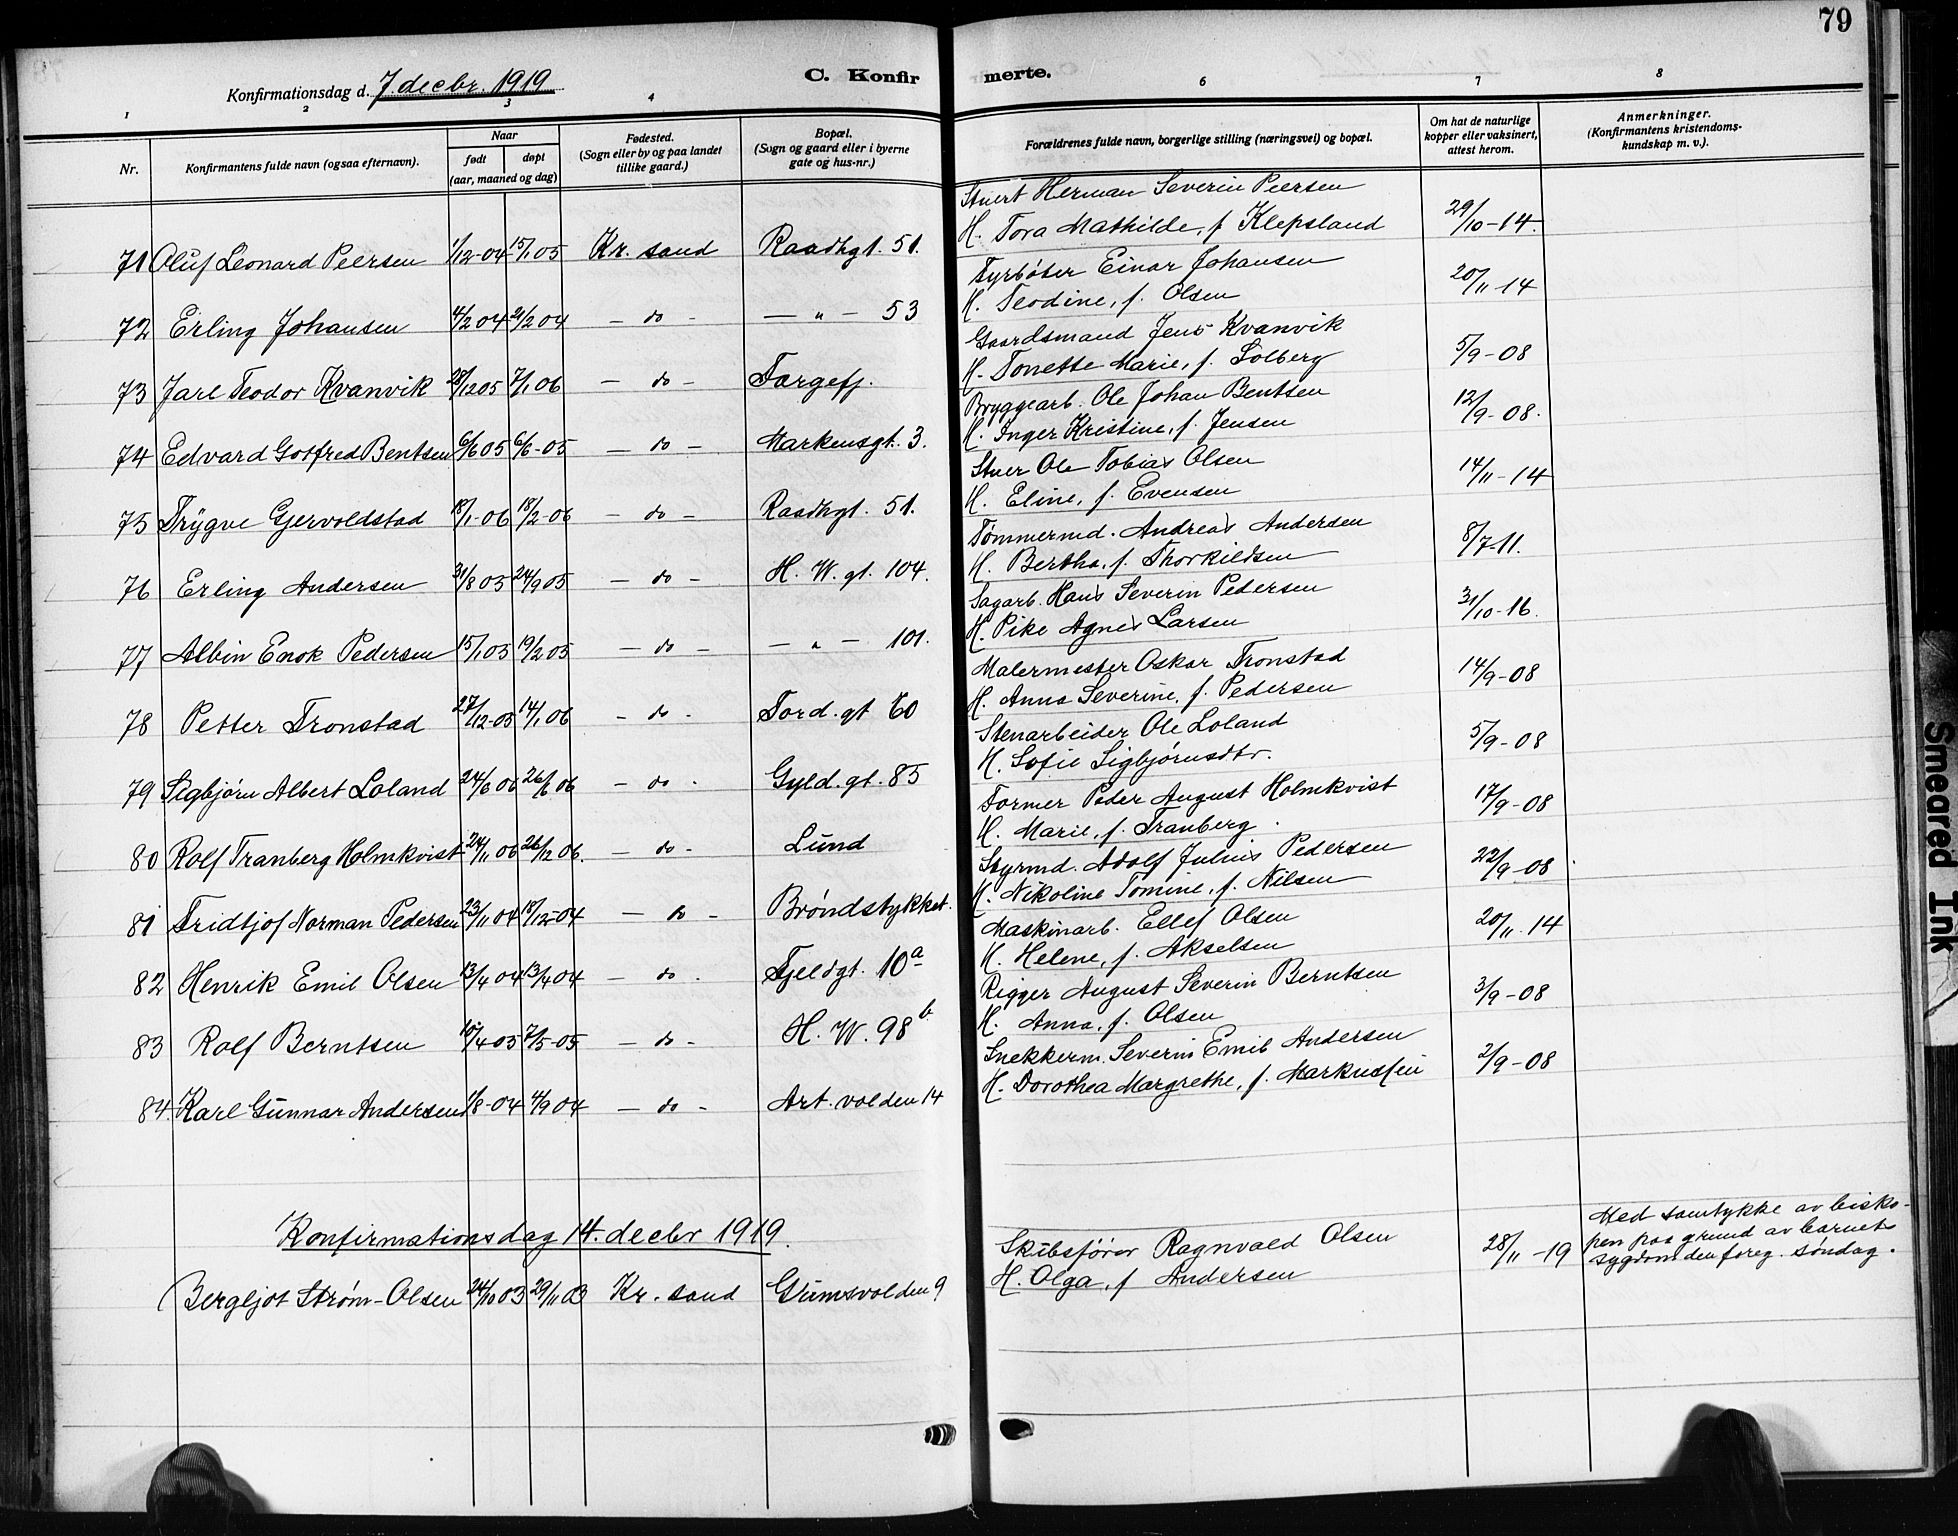 79
C. Konfirmerte.
Konfirmationsdag d. 7. decbr. 1919
1 2 3 4 6 7 8
Nr.
Konfirmantens fulde navn (ogsaa efternavn).
Naar
født døpt
(aar, maaned og dag)
Fødested.
(Sogn eller by og paa landet
tillike gaard.)
Bopæl.
(Sogn og gaard eller i byerne
gate og hus-nr.)
Forældrenes fulde navn, borgerlige stilling (næringsvei) og bopæl.
Om hat de naturlige
kopper eller vaksinert,
attest herom.
Anmerkninger.
(Konfirmantens kristendoms-
kundskap m. v.).
71 Oluf Leonard Peersen 1/12-04 15/1 05 Kr. sand Raadhgt. 51. Stuert Herman Severin Peersen
H. Tora Mathilde, f Klepsland 29/10-14.
72 Erling Johansen 4/2 04 21/2 04 - do - - " - 53 Fyrbøter Einar Johansen
H. Teodine, f. Olsen 20/11-14
73 Jarl Teodor Kvanvik 28/12 05 7/1 06 - do - Fargefj. Gaardsmand Jens Kvanvik
H. Tonette Marie, f. Solberg 5/9-08
74 Edvard Gotfred Bentsen 6/6 05 6/6-05 - do - Markensgt. 3. Bryggearb. Ole Johan Bentsen
H. Inger Kristine, f. Jensen 12/9-08.
75 Trygve Gjervoldstad 18/1-06 18/2-06 - do - Raadhgt. 51. Stuer Ole Tobias Olsen
H. Eline, f. Evensen 14/11-14
76 Erling Andersen 31/8 05 24/9 05 - do - H. W. gt. 104. Tømmermd. Andreas Andersen
H. Bertha, f. Thorkildsen 8/7-11.
77 Albin Enok Pedersen 15/1 05 19/2 05 - do - - " - 101. Sagarb. Hans Severin Pedersen
H. Pike Agnes Larsen 31/10-16.
78 Petter Tronstad 27/12-05 14/1 06 - do - Tord. gt 60 Malermester Oskar Tronstad
H. Anna Severine, f. Pedersen 14/9-08
79 Sigbjørn Albert Loland 24/6 06 26/6 06 - do - Gyld. gt. 85 Stenarbeider Ole Loland
H. Sofie Sigbjørnsdtr. 5/9-08
80 Rolf Tranberg Holmkvist 24/11 06 26/12 06. - do - Lund Former Peder August Holmkvist
H. Marie, f. Tranberg. 17/9-08
81 Fridtjof Norman Pedersen 23/11 04 18/12-04 - do - Brøndstykket. Styrmd. Adolf Julius Pedersen
H. Nikoline Tomine, f. Nilsen 22/9-08
82 Henrik Emil Olsen 13/4 04 13/4 04 - do - Fjeldgt. 10a Maskinarb. Ellef Olsen
H. Helene, f. Akselsen 20/11.14
83 Rolf Berntsen 10/4-05 7/5-05 - do - H. W. 98b Rigger August Severin Berntsen
H. Anna, f. Olsen 3/9-08
84. Karl Gunnar Andersen 1/8-04 4/9 04 - do - Art. volden 14 Snekkerm. Severin Emil Andersen
H. Dorothea Margrethe, f. Markussen 2/9-08
Konfirmationsdag 14. decbr 1919.
Bergljot Strøm-Olsen 24/10 03 29/11 03 Kr. sand Grimsvolden 9 Skibsfører Ragnvald Olsen
H. Olga, f Andersen 28/11-19
Med samtykke av bisko-
pen paa grund av barnets
sygdom den foreg. søndag.
Smeared Ink